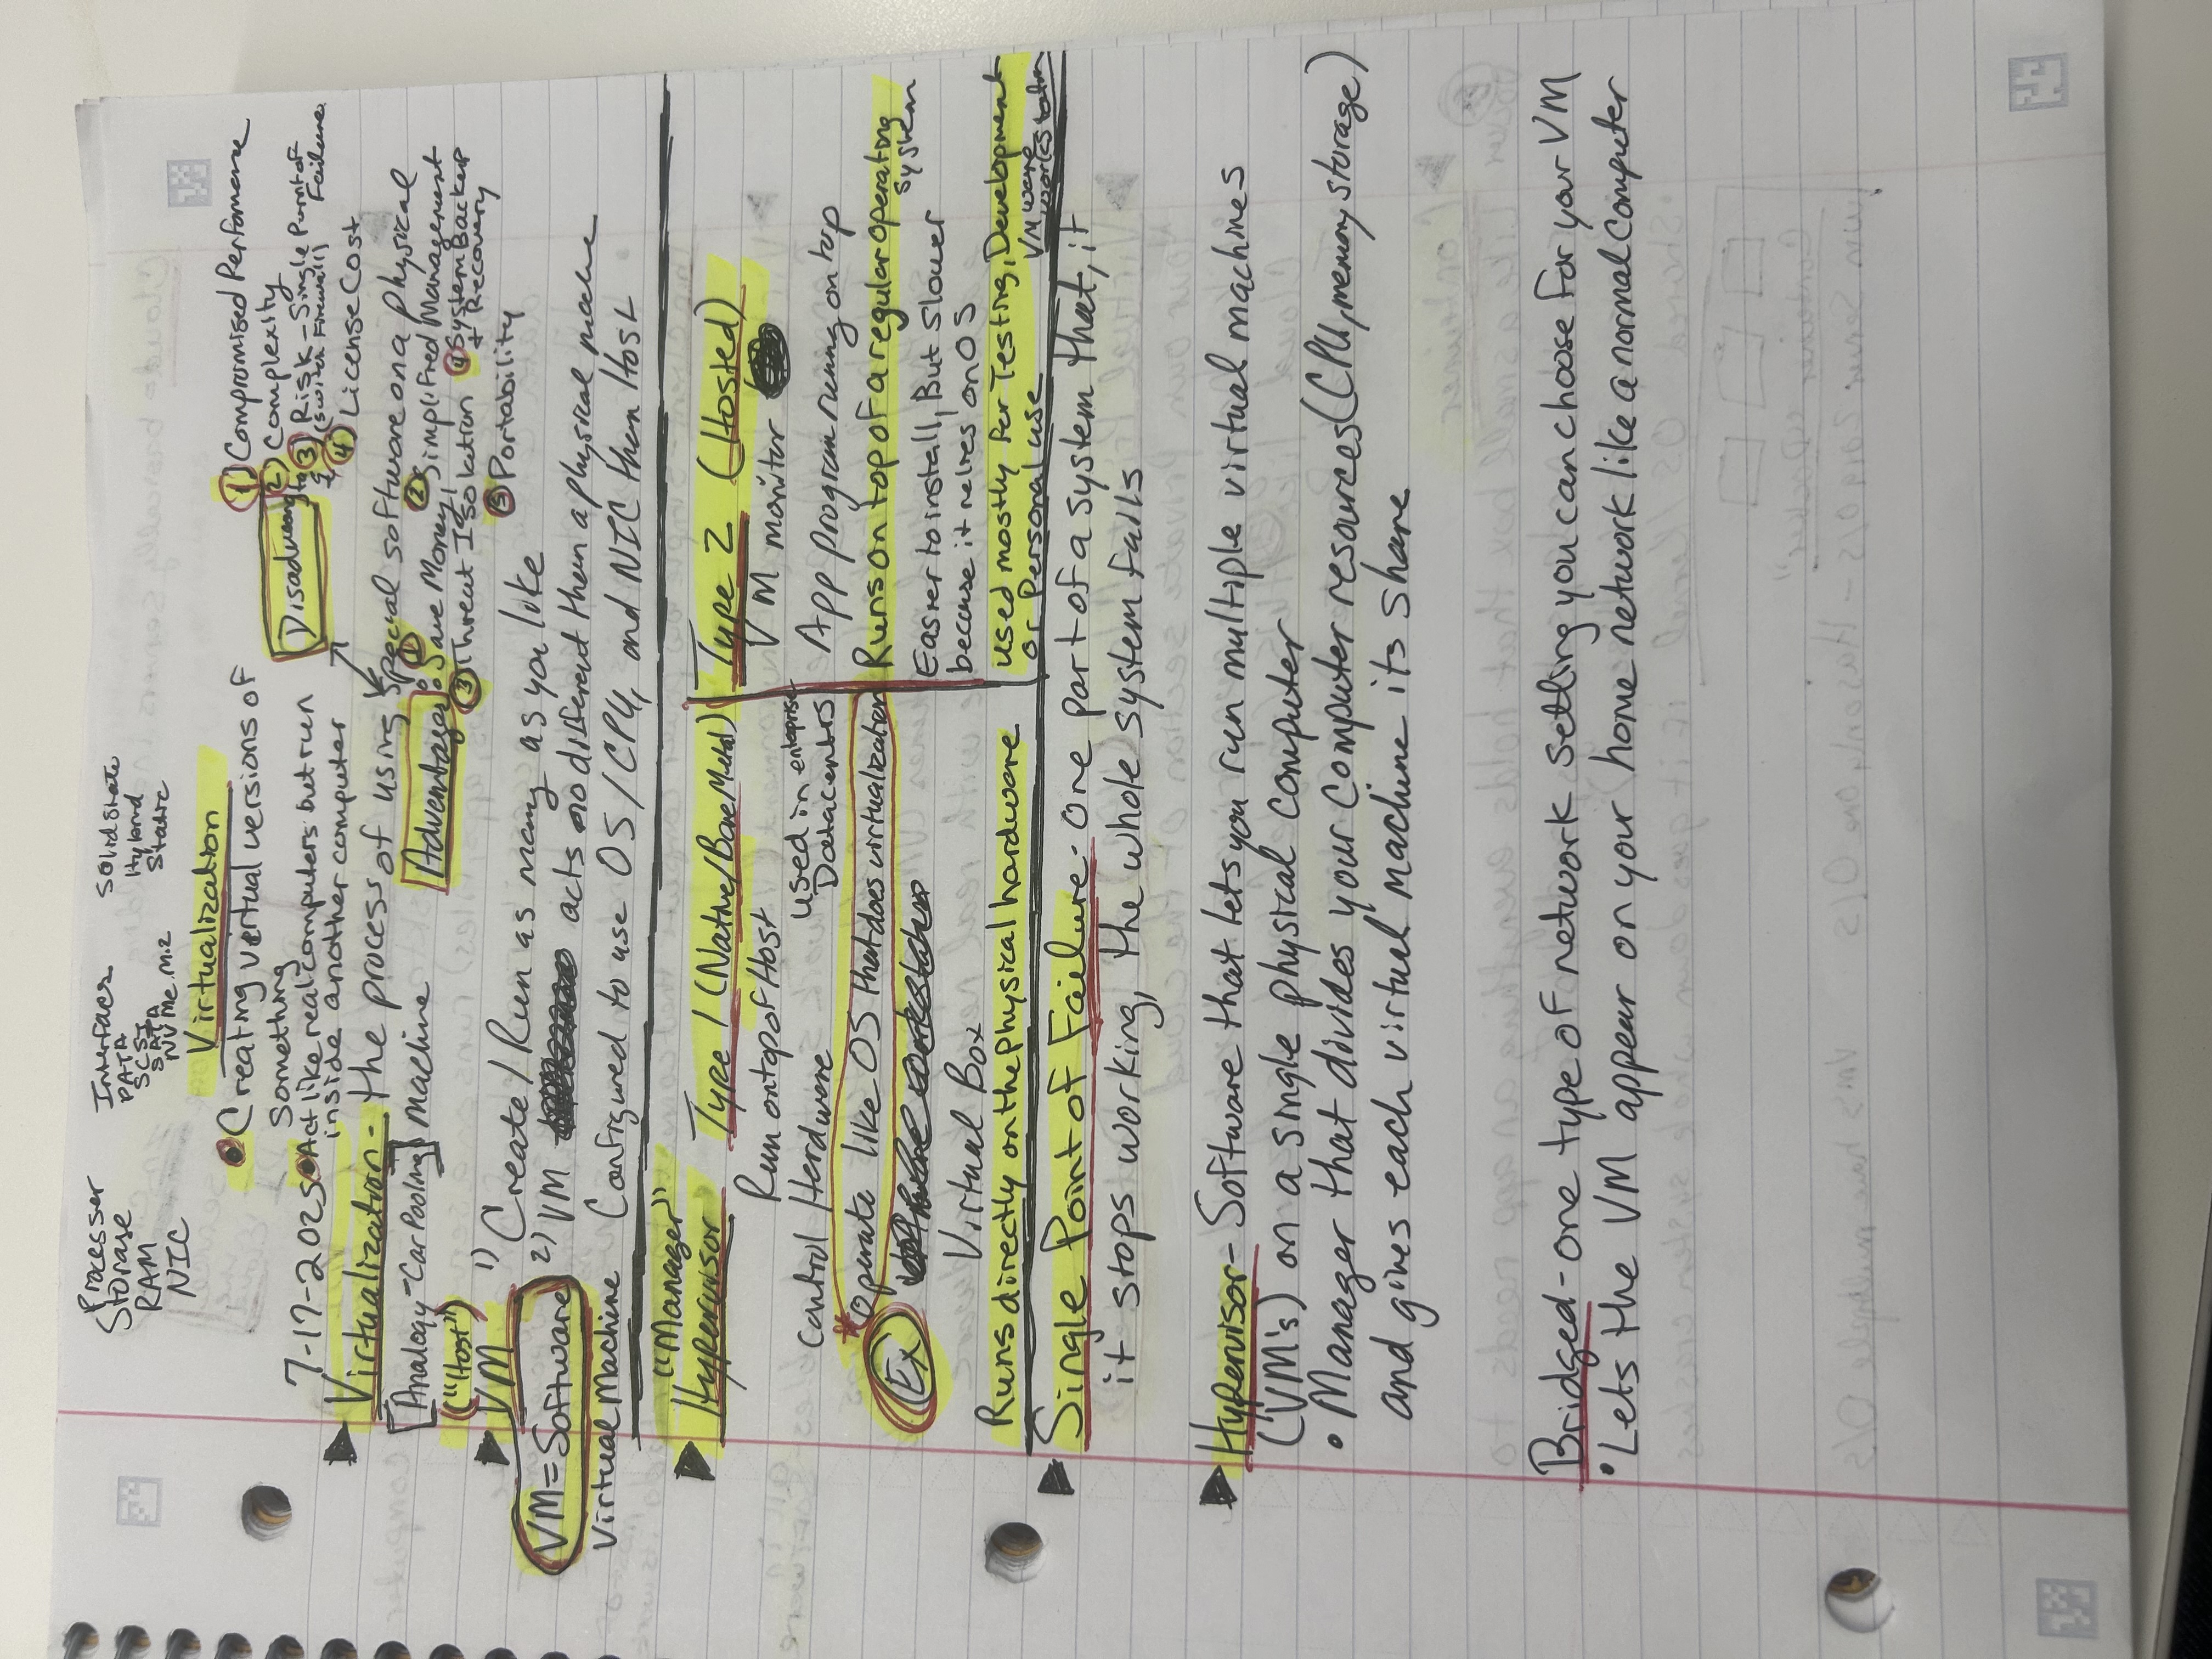 Processer
Storage
RAM
NIC
Interfaces
PATA
SCSI
SATA
NVMe M.2
Solid State
Hybrid
Static
Virtualization
• Creating virtual versions of
Something
7-17-2025 • Act like real computers but run
inside another computer
Disadvantages
1) Compromised Performance
2) Complexity
3) Risk - Single Point of Failure
(Switch Firewall)
4) License Cost
Virtualization - the process of using special software on a physical
[Analogy - Car Pooling] machine
Advantages: 1 Save Money, 2 Simplified Management
3 Threat Isolation 4 System Backup
+ Recovery
5 Portability
("Host")
VM 1) Create / Run as many as you like
VM = Software 2) VM acts no different then a physical machine
Virtual Machine Configured to use OS / CPU, and NIC then Host
"Manager"
Hypervisor
Type 1 (Native/Bare Metal)
Run on top of Host
Control Hardware
used in enteprise
Datacentrs
* Operate like OS that does virtualization
Ex
Virtual Box
Runs directly on the Physical hardware
Type 2 (Hosted)
VM monitor
App program runng on top
Runs on top of a regular operating
system
Easier to install, But slower
because it relies on OS
used mostly for Testing, Development
or Personal use
VMware
workstation
Single Point of Failure - one part of a system that, if
it stops working, the whole system fails
Hypervisor - Software that lets you run multiple virtual machines
(VM's) on a single physical computer
• Manager that divides your computer resources (CPU, memory, storage)
and gives each virtual machine its share
Bridged - one type of network setting you can choose for your VM
• Lets the VM appear on your home network like a normal computer